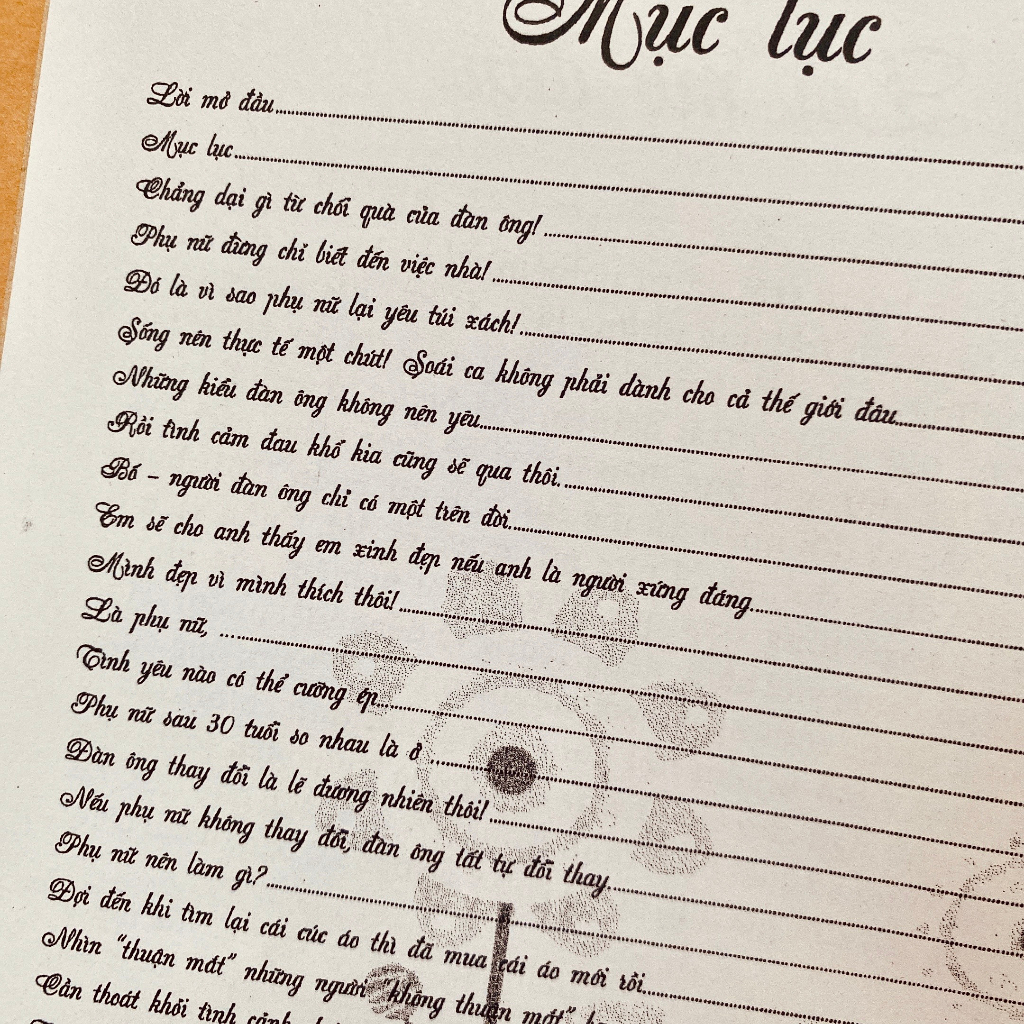 Mục lục
Lời mở đầu
Mục lục
Chẳng dại gì từ chối quà của đàn ông!
Phụ nữ đừng chỉ biết đến việc nhà!
Đó là vì sao phụ nữ lại yêu túi xách!
Sống nên thực tế một chút! Soái ca không phải dành cho cả thế giới đâu
Những kiểu đàn ông không nên yêu
Rồi tình cảm đau khổ kia cũng sẽ qua thôi.
Bố – người đàn ông chỉ có một trên đời
Em sẽ cho anh thấy em xinh đẹp nếu anh là người xứng đáng
Mình đẹp vì mình thích thôi!
Là phụ nữ, ...
Tình yêu nào có thể cưỡng ép
Phụ nữ sau 30 tuổi so nhau là ở ...
Đàn ông thay đổi là lẽ đương nhiên thôi!
Nếu phụ nữ không thay đổi, đàn ông tất tự đổi thay
Phụ nữ nên làm gì?
Đợi đến khi tìm lại cái cúc áo thì đã mua cái áo mới rồi
Nhìn “thuận mắt” những người “không thuận mắt”
Cần thoát khỏi tình cảnh